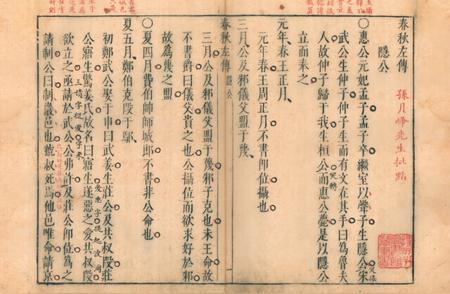 春秋左傳
隱公
孫月峰先生批點
〇惠公元妃孟子孟子卒繼室以聲子生隱公宋
武公生仲子仲子生而有文在其手曰爲魯夫
人故仲子歸于我生桓公而惠公薨是以隱公
立而奉之
元年春王正月
元年春王周正月不書卽位攝也
三月公及邾儀父盟于蔑
春秋左傳 隱公
三月公及邾儀父盟于蔑邾子克也未王命故
不書爵曰儀父貴之也公攝位而欲求好於邾
故爲蔑之盟
〇夏四月費伯帥師城郎不書非公命也
夏五月鄭伯克段于鄢
初鄭武公娶于申曰武姜生莊公及共叔段莊
公寤生驚姜氏故名曰寤生遂惡之愛共叔段
欲立之亟請於武公公弗許及莊公卽位爲之
請制公曰制巖邑也虢叔死焉他邑唯命請京